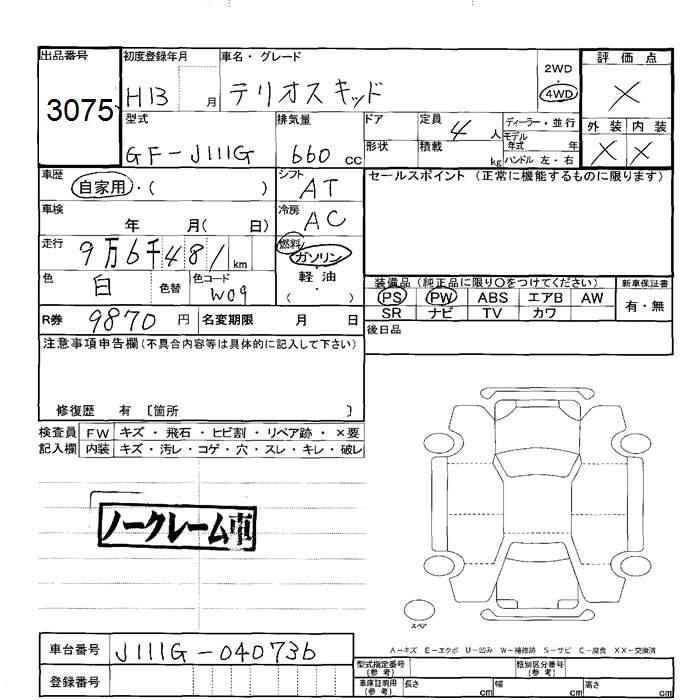 出品番号 初度登録年月 車名・グレード 2WD 評価点
3075 H13 月 テリオスキッド ・ 4WD ×
型式 排気量 ドア 定員 4 人 ディーラー・並行 外装 内装
GF-J111G 660 cc 形状 積載 kg モデル年式 年 × ×
ハンドル 左・右
車歴 自家用・( ) シフト AT セールスポイント (正常に機能するものに限ります)
車検 年 月( 日) 冷房 AC
走行 9万6千481 km 燃料 ガソリン・
色 白 色替 色コード W09 軽油・( )
装備品(純正品に限り○をつけてください) 新車保証書
PS PW ABS エアB AW 有・無
SR ナビ TV カワ
R券 9870 円 名変期限 月 日 後日品
注意事項申告欄(不具合内容等は具体的に記入して下さい)
修復歴 有 〔箇所 〕
検査員 FW キズ・飛石・ヒビ割・リペア跡・×要
記入欄 内装 キズ・汚レ・コゲ・穴・スレ・キレ・破レ
ノークレーム車
スペア
A-キズ E-エクボ U-凹み W-補修跡 S-サビ C-腐食 XX-交換済
車台番号 J111G-040736 型式指定番号(参考) 類別区分番号(参考)
登録番号 車庫証明用(参考) 長さ cm 幅 cm 高さ cm